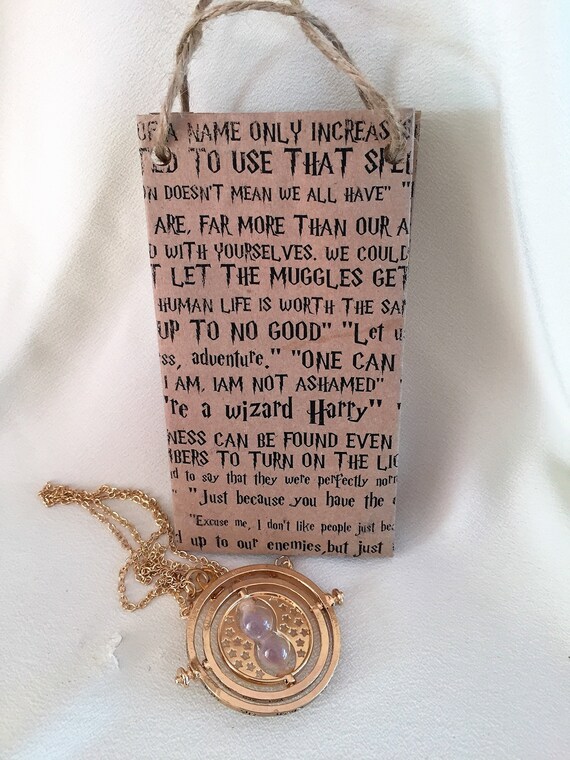 OF A NAME ONLY INCREAS
TED TO USE THAT SPEL
N DOESN'T MEAN WE ALL HAVE" "
ARE, FAR MORE THAN OUR A
D WITH YOURSELVES. WE COULD
T LET THE MUGGLES GET
HUMAN LIFE IS WORTH THE SAM
UP TO NO GOOD" "Let u
ss, adventure." "ONE CAN
I AM, IAM NOT ASHAMED"
're a wizard Harry" "
NESS CAN BE FOUND EVEN
MBERS TO TURN ON THE LIG
d to say that they were perfectly norm
" "Just because you have the
"Excuse me, I don't like people just bec
d up to our enemies,but just